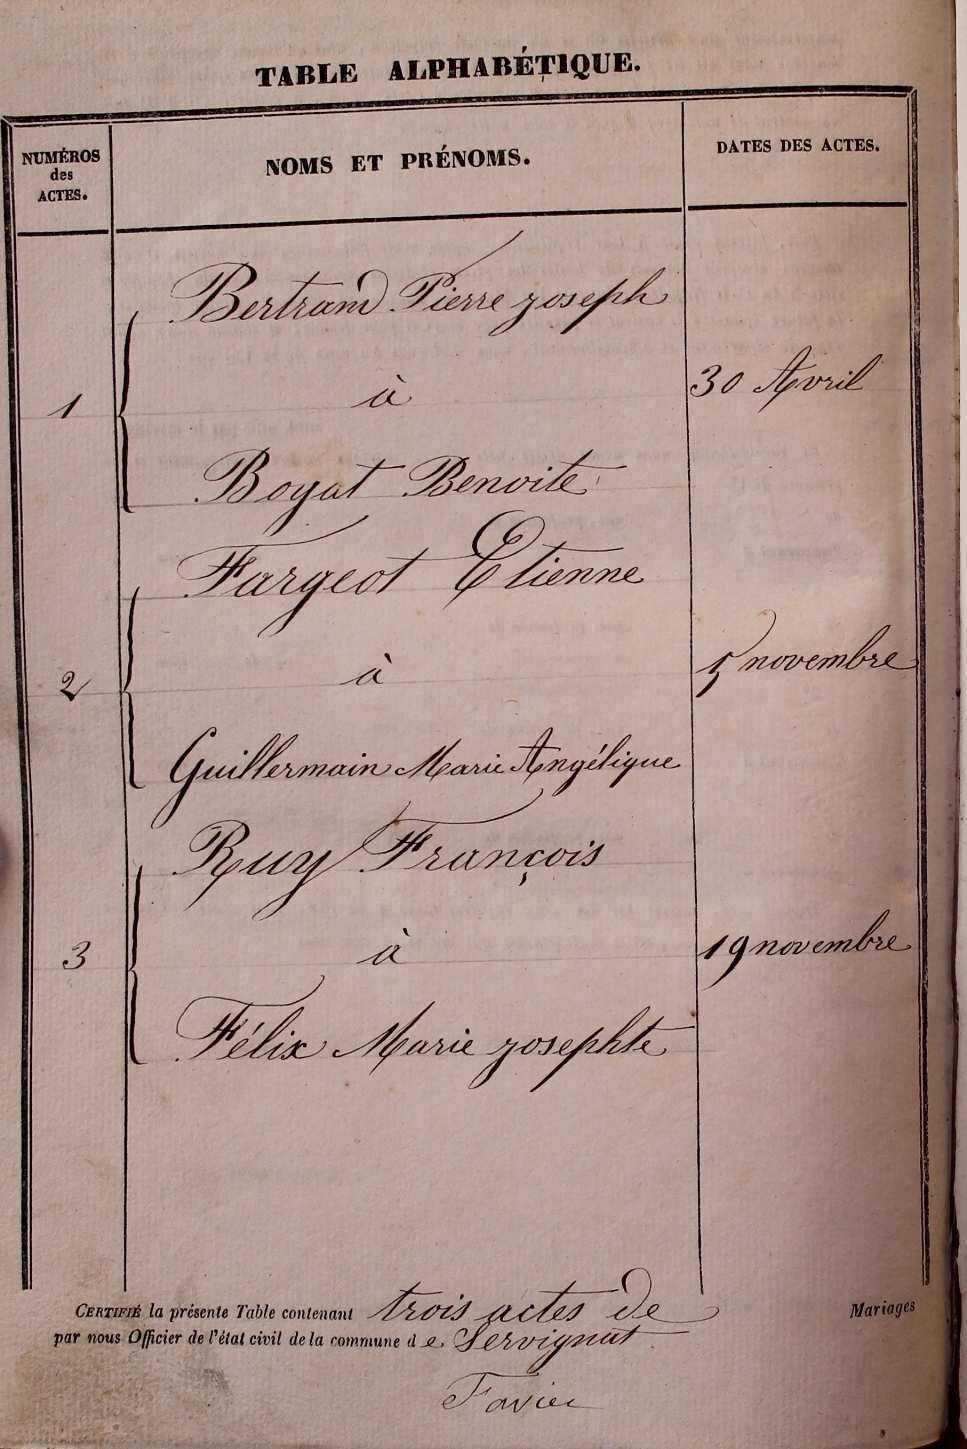 TABLE ALPHABÉTIQUE.
NUMÉROS
des
ACTES.
NOMS ET PRÉNOMS.
DATES DES ACTES.
Bertrand Pierre joseph
1
à
30 Avril
Boyat Benoite
Fargeot Etienne
2
à
5 novembre
Guillermain Marie Angélique
Ruy François
3
à
19 novembre
Félix Marie josephte
CERTIFIÉ la présente Table contenant trois actes de Mariages
par nous Officier de l'état civil de la commune de Servignat
Favier